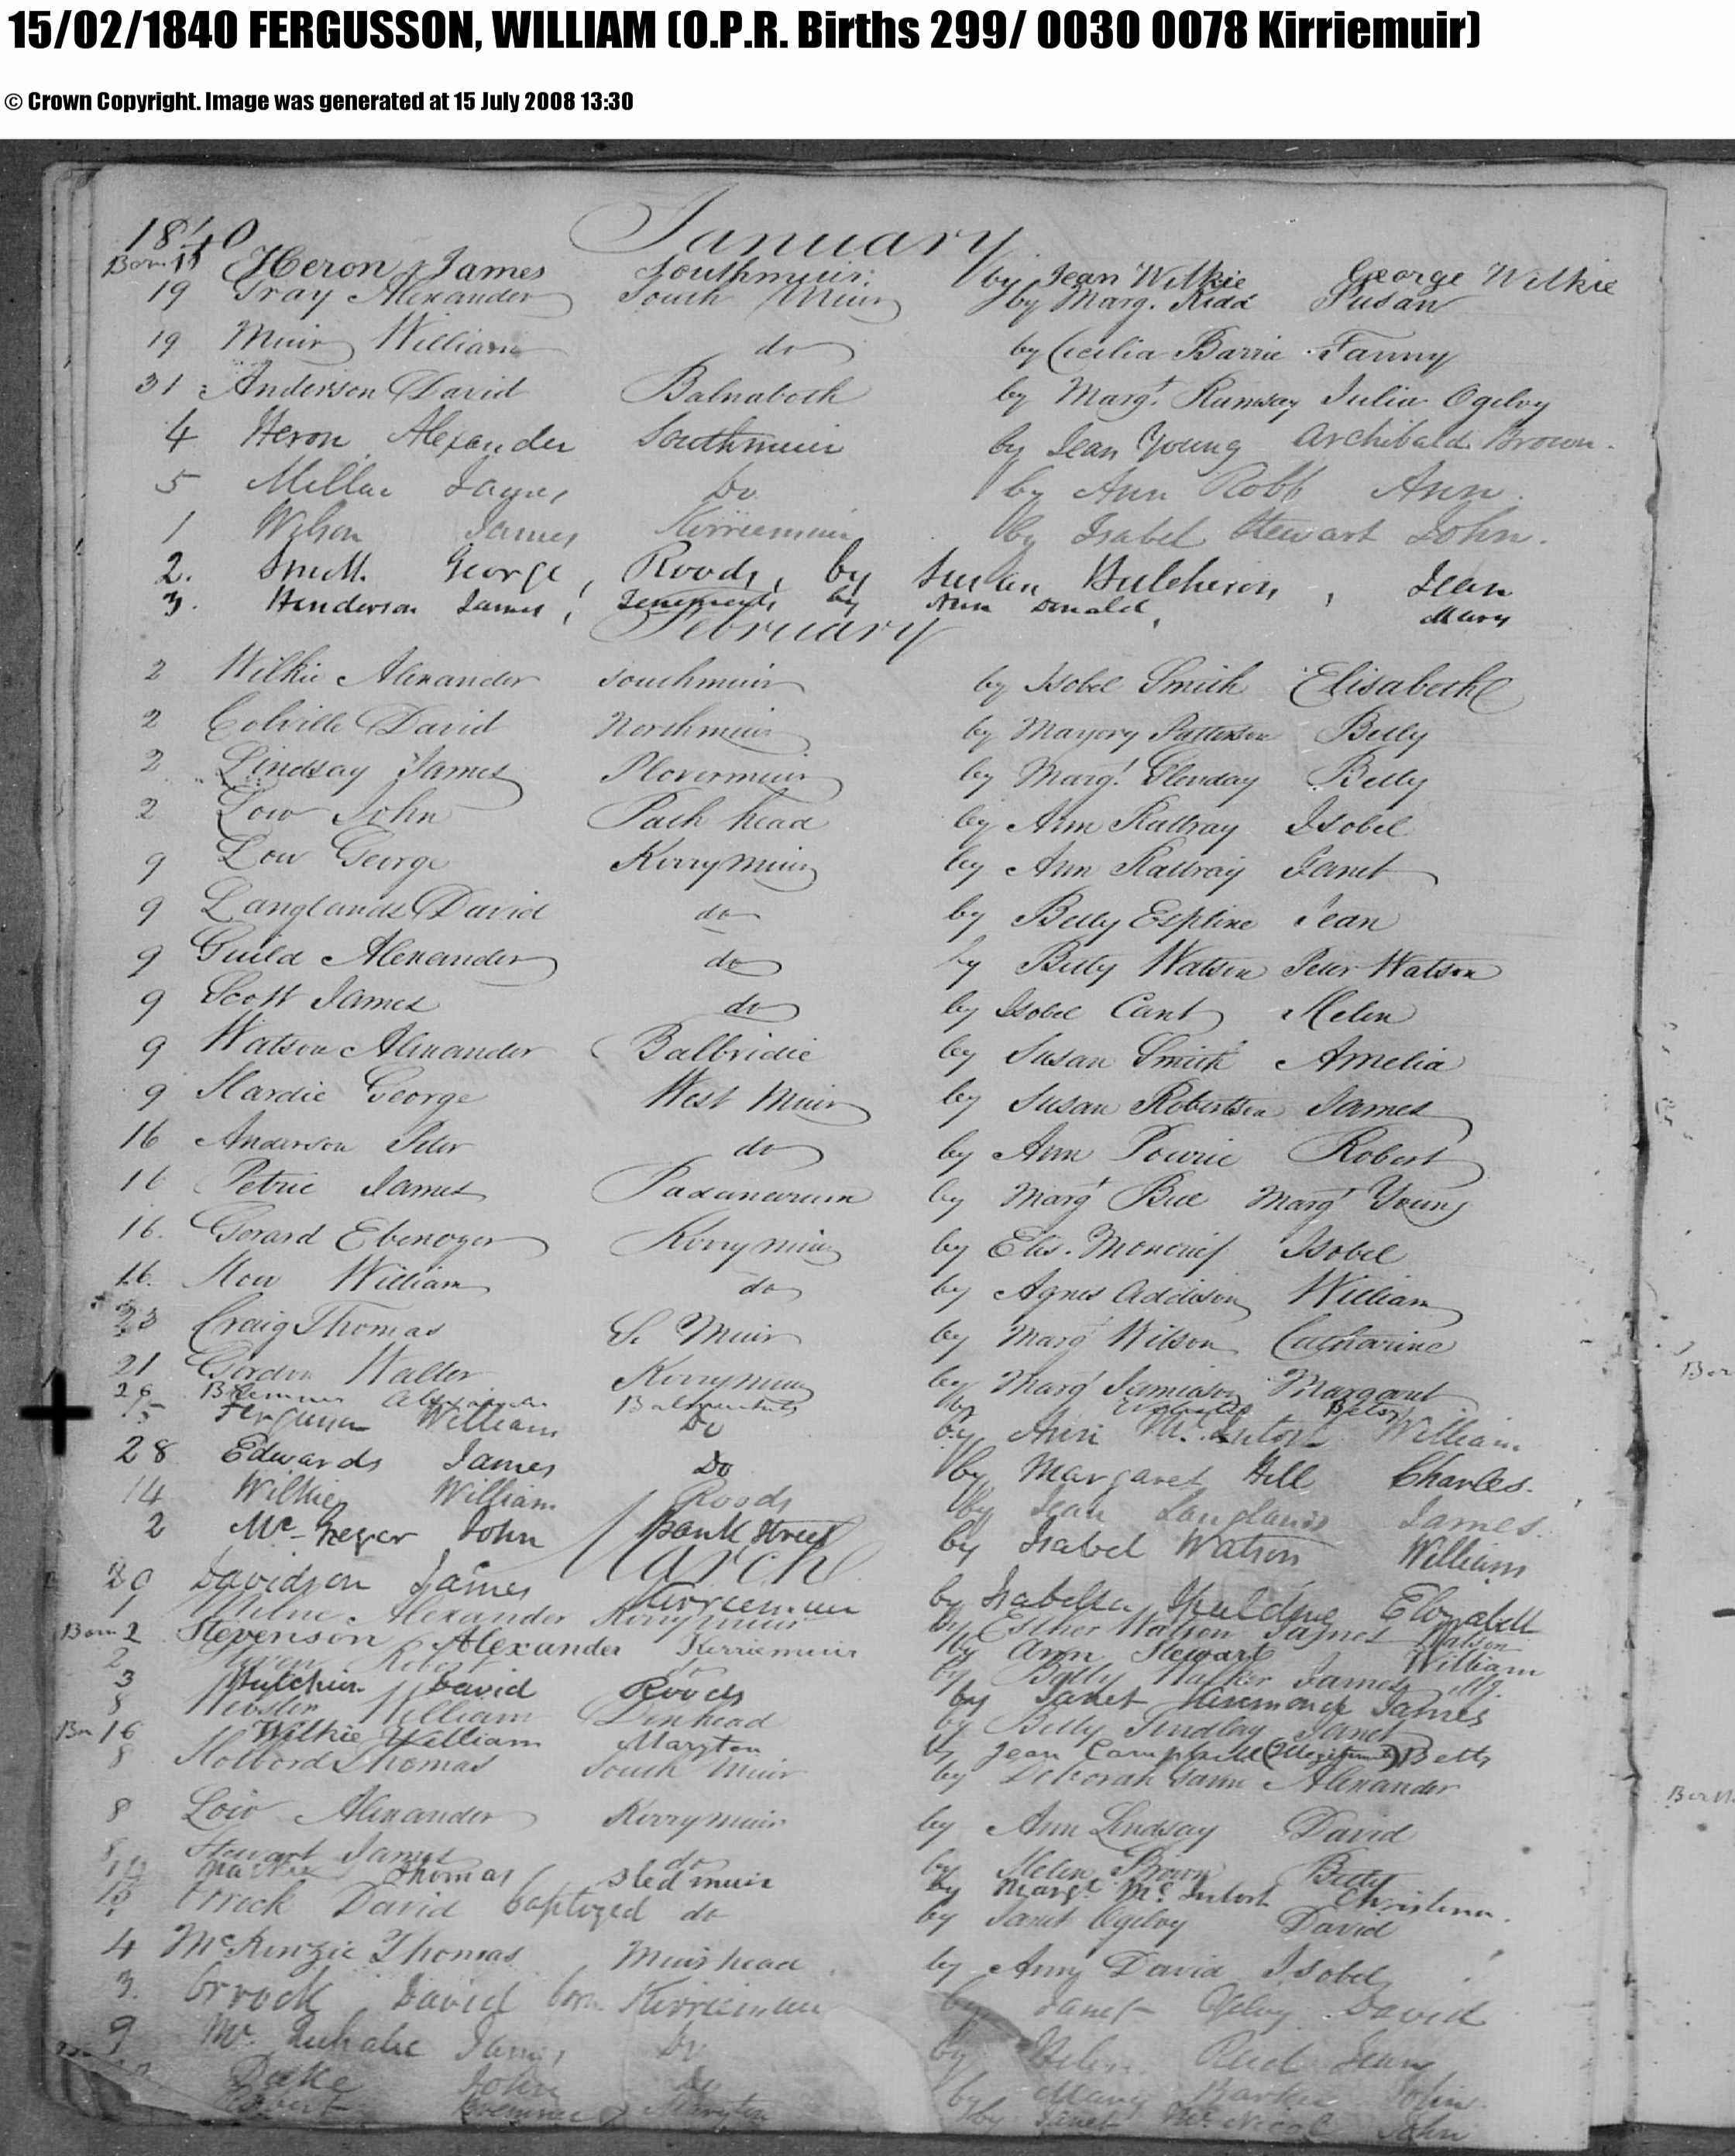 15/02/1840 FERGUSSON, WILLIAM (O.P.R. Births 299/ 0030 0078 Kirriemuir)
© Crown Copyright. Image was generated at 15 July 2008 13:30
1840 January
Born 11 Heron James Southmuir by Jean Wilkie George Wilkie
19 Gray Alexander South Muir by Marg. Kidd Susan
19 Muir William do by Cecilia Barrie Fanny
31 Anderson David Balnaboth by Margt. Ramsay Julia Ogilvy
4 Heron Alexander Southmuir by Jean Young Archibald Brown.
5 Millar James Do by Ann Robb Ann.
1 Wilson James Kirriemuir by Isabel Stewart John.
2. Smith George, Roods, by Susan Hutcheson, Jean
3. Henderson James, Tenements by Ann Donald, Mary
February
2 Wilkie Alexander Southmuir by Isobel Smith Elisabeth
2 Colville David Northmuir by Marjory Patterson Betty
2 Lindsay James Plovermuir by Margt Glenday Betty
2 Low John Path head by Ann Rattray Isobel
9 Low George Kerrymuir by Ann Rattray Janet
9 Langlands David do by Betty Espline Jean
9 Guild Alexander do by Betty Watson Peter Watson
9 Scott James do by Isobel Cant Helen
9 Watson Alexander Balbridie by Susan Smith Amelia
9 Hardie George West Muir by Susan Robertson James
16 Anderson Peter do by Ann Lowrie Robert
16 Petrie James by Margt Margt Young
16. Gorard Ebenezer Kerrymuir by Elis. Moncrief Isobel
16. How William do by Agnes Addison William
23 Craig Thomas S. Muir by Margt Wilson Catharine
21 Gordon Walter Kerrymuir by Margt Jamieson Margaret
26 Alexander by Betsy
15 Ferguson William Do by Ann Mc.Intosh William
28 Edwards James Do by Margaret Hill Charles.
14 Wilkie William Roods by Jean Langlands James.
2 Mc Gregor John Bank Street by Isabel Watson William
March
20 Davidson James Kirriemuir by Isabella Spalding Elizabeth
1 Milne Alexander Kerrymuir by Esther Watson James Watson
Born 2 Stevenson Alexander Kirriemuir by Ann Stewart William
2 Robert by Betty Walker James
3 Hutchin David Roods by Janet James
8 Webster William Denhead by Betty Findlay Janet
Bn 16 Wilkie William Maryton by Jean Campbell (Illegitimate) Betty
8 Holbord Thomas South Muir by Deborah Alexander
8 Low Alexander Kerrymuir by Ann Lindsay David
8 Stewart James do by Helen Brown Betty
Thomas Sledmuir by Margt. Mc Intosh Christina.
15 Orrock David baptized do by Janet Ogilvy David
4 McKenzie Thomas Muirhead by Ann David Isobel
3. Orrock David born Kirriemuir by Janet Ogilvy David
9 James Do by Helen Reid Jean
Duke John Do by Mary Barkie John
Maryton by Janet Mc Nicol John